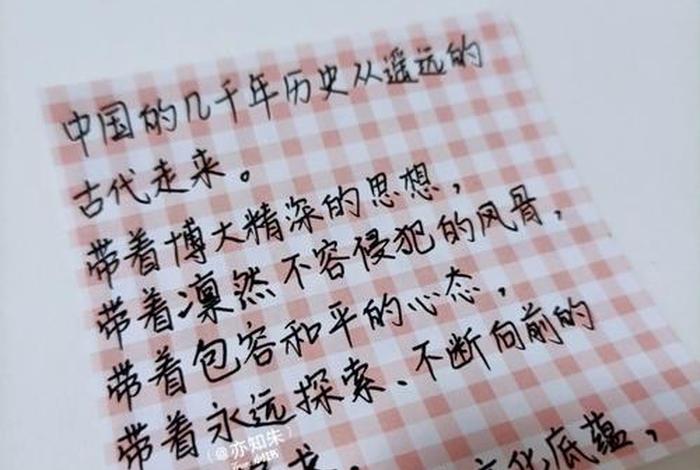 中国的几千年历史从遥远的
古代走来。
带着博大精深的思想，
带着凛然不容侵犯的风骨，
带着包容和平的心态，
带着永远探索、不断向前的
文化底蕴，
@亦知朱